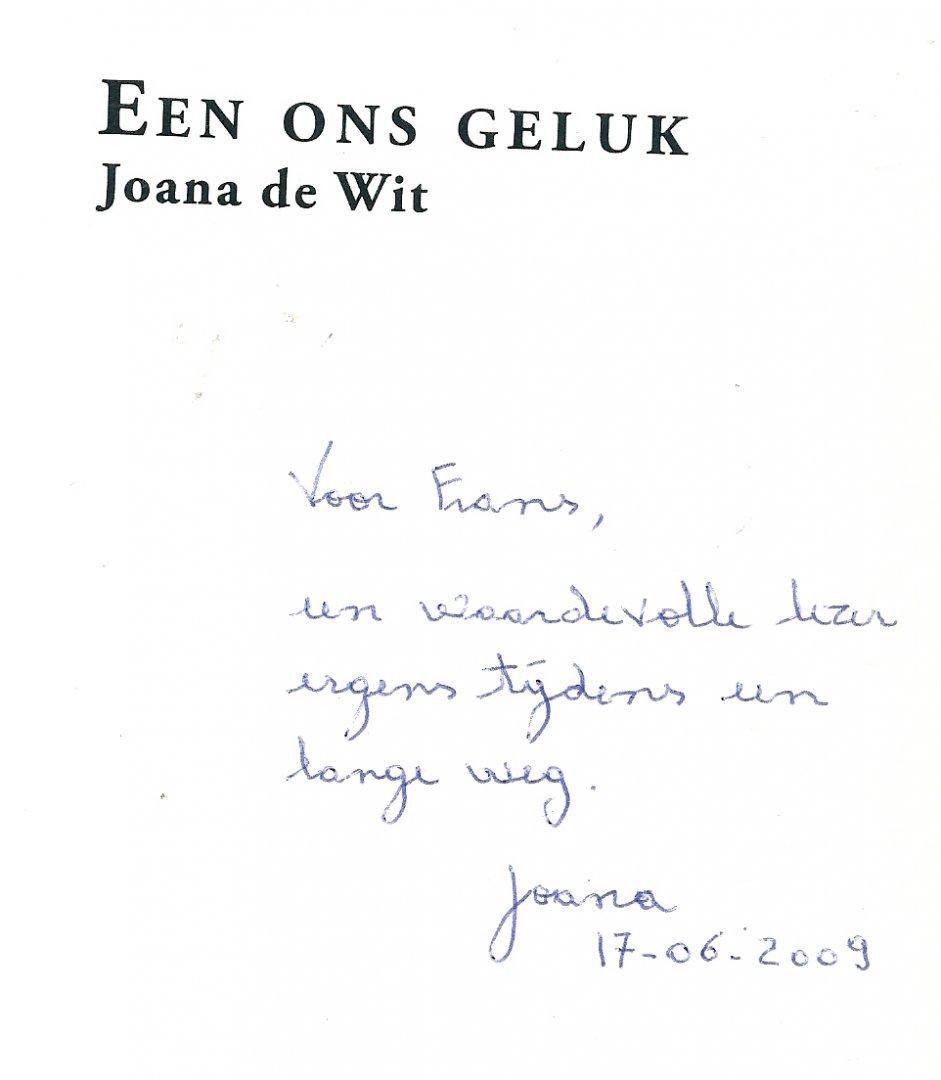 EEN ONS GELUK
Joana de Wit
Voor Frans,
een waardevolle lezer
ergens tijdens een
lange weg.
Joana
17-06-2009